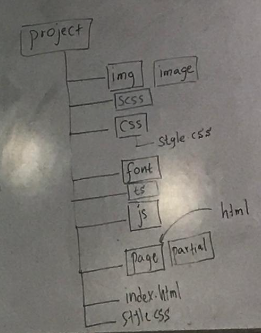 project
img image
scss
css
style css
font
ts
js
html
page partial
index.html
style css